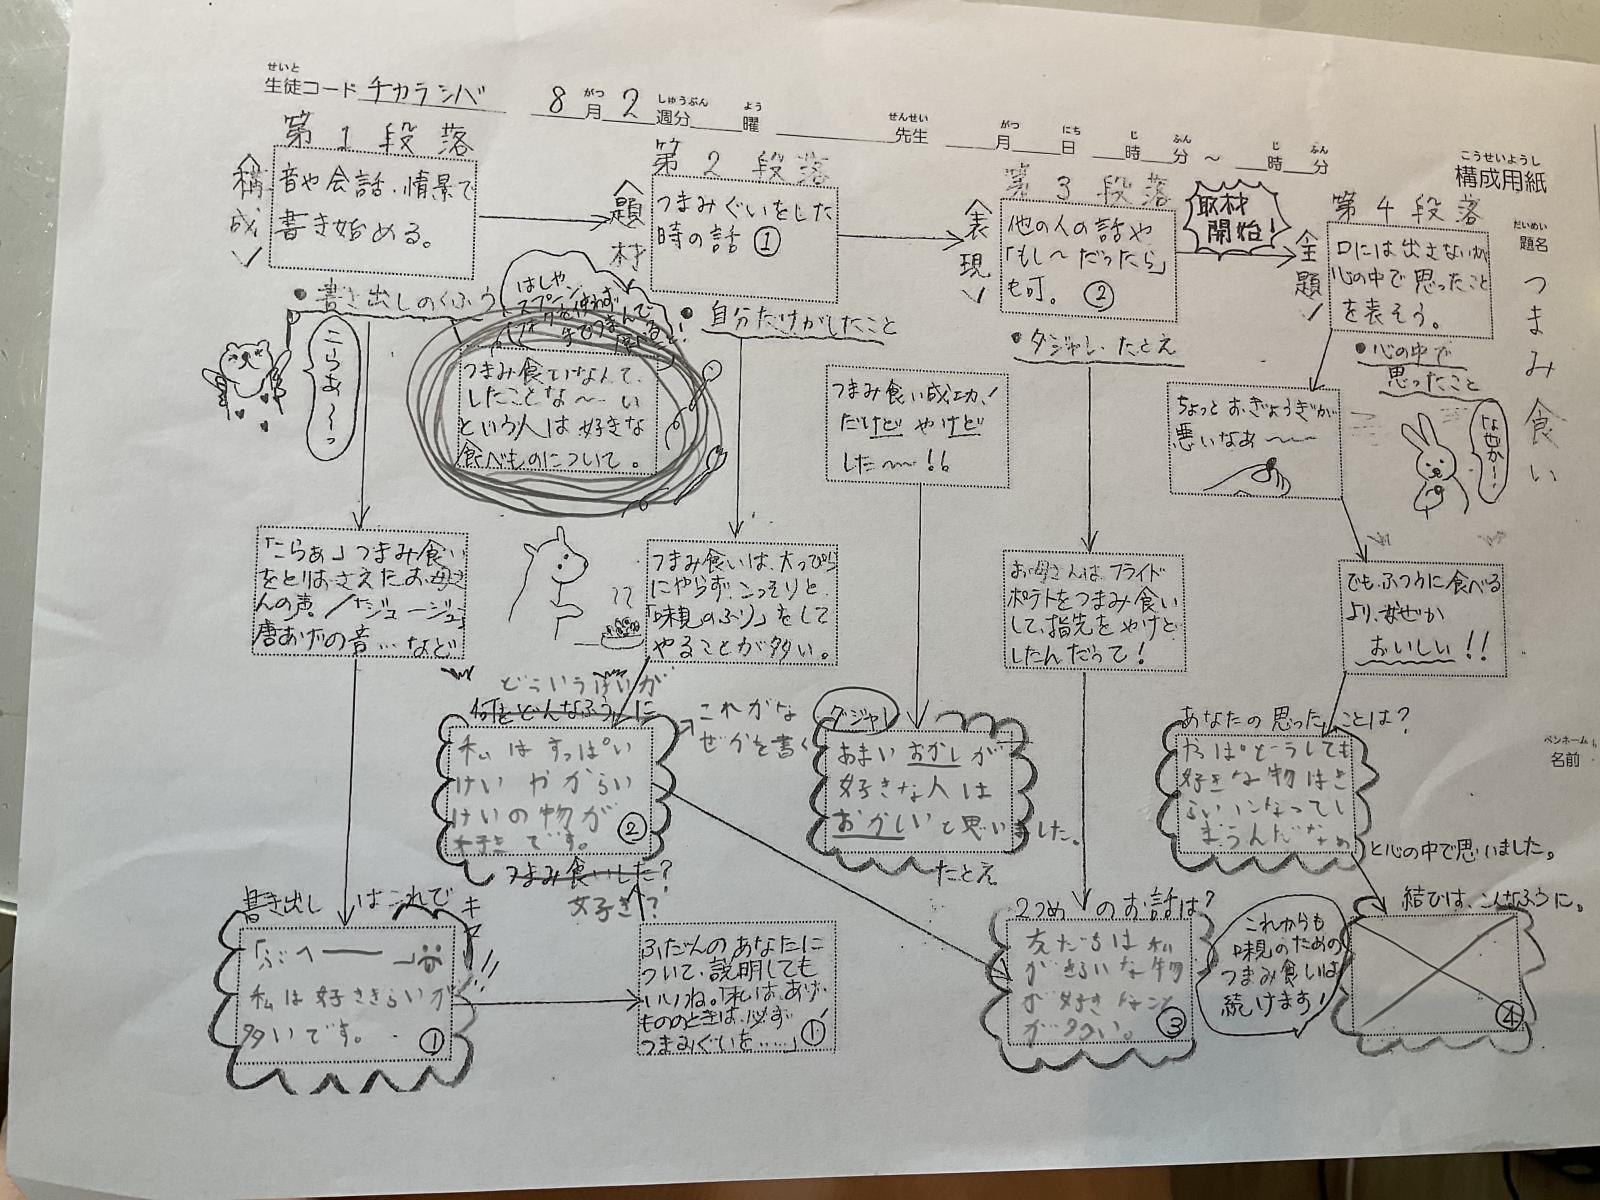 せいと
生徒コード チカラシバ 8月2週分 曜 先生 月 日 時 分 ~ 時 分
がつ しゅうぶん よう せんせい がつ にち じ ふん じ ふん
こうせいようし
構成用紙
だいめい
題名 つまみ食い
ペンネーム
名前
第1段落
〈構成〉
音や会話、情景で
書き始める。
●書き出しのくふう
こらあ〜っ
「こらぁ」つまみ食い
をとりおさえたお母さ
んの声。/「ジュージュー」
唐あげの音…など
書き出しはこれで
キマ
リ!!
「ぶへーー」
私は好ききらいが
多いです。
①
第2段落
〈題材〉
つまみぐいをした
時の話 ①
●自分だけがしたこと
はしや、
スプーン、
フォークを使わず
手でつまんで
食べること!
つまみ食いなんて、
したことな〜い
という人は好きな
食べものについて。
つまみ食いは、大っぴら
にやらず、こっそりと、
「味見のふり」をして
やることが多い。
どういうはいが
何をどんなふうに
これがな
ぜかを書く
私はすっぱい
けいやからい
けいの物が
好きです。
②
つまみ食いした?
好き?
ふだんのあなたに
ついて、説明しても
いいね。「私は、あげ
もののときは、必ず
つまみぐいを……」①
第3段落
〈表現〉
他の人の話や
「もし〜だったら」
も可。 ②
●ダジャレ・たとえ
つまみ食い成功!
だけど やけど
した〜〜!!
お母さんは、フライド
ポテトをつまみ食い
して、指先をやけど
したんだって!
ダジャレ
あまいおかしが
好きな人は
おかしいと思いました。
たとえ
2つめのお話は?
友だちは私
がきらいな物
が好きなこと
が多い。
③
取材
開始!
第4段落
〈主題〉
口には出さないが
心の中で思ったこと
を表そう。
●心の中で
思ったこと
ちょっとおぎょうぎが
悪いなあ〜〜
なぜか〜
でも、ふつうに食べる
より、なぜか
おいしい!!
あなたの思ったことは?
やっぱどうしても
好きな物はき
らいになってし
まうんだなぁ
と心の中で思いました。
結びは、こんなふうに。
これからも
味見のための
つまみ食いは
続けます!
④